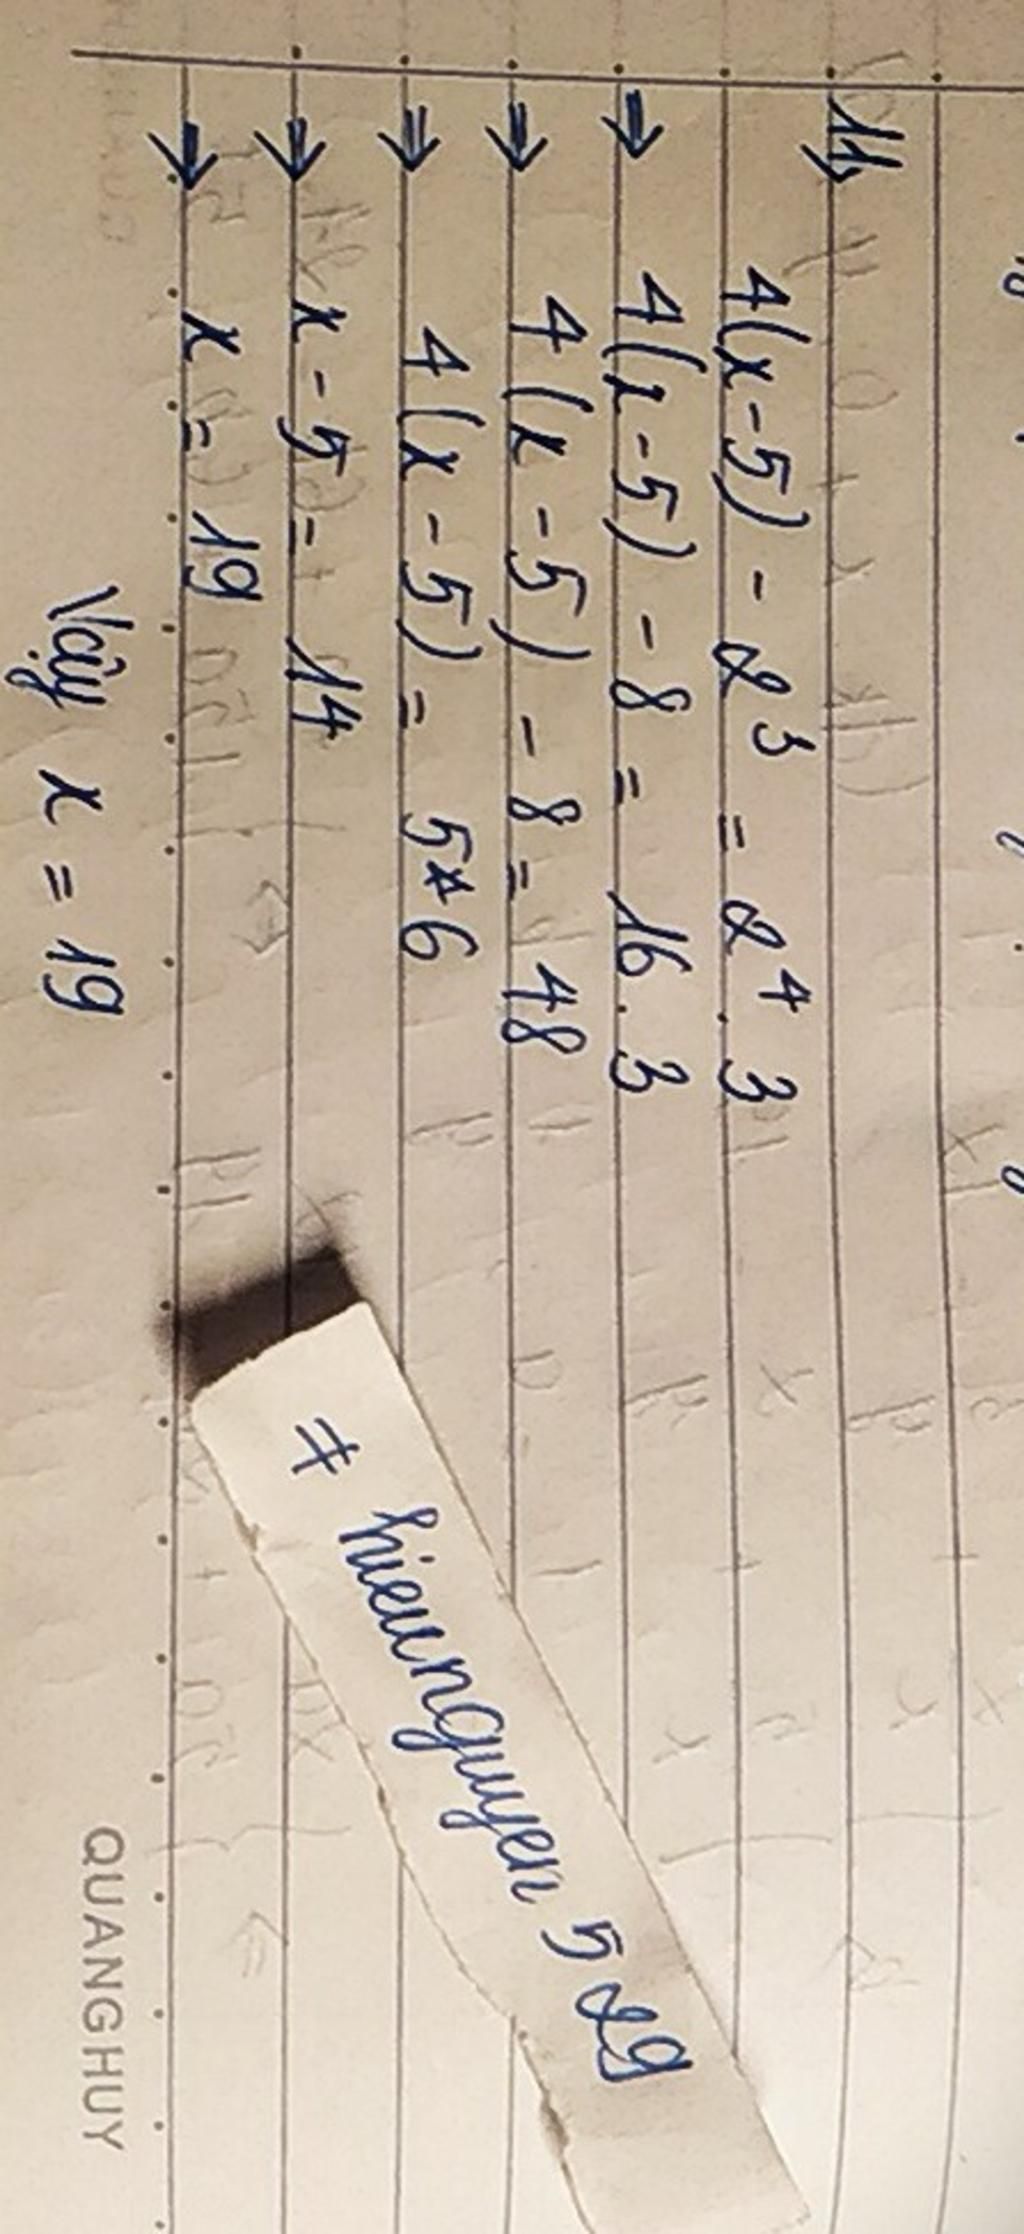 11,
4(x-5) - 2³ = 2⁴ . 3
⇒ 4(x-5) - 8 = 16 . 3
⇒ 4(x-5) - 8 = 48
⇒ 4(x-5) = 5*6
⇒ x-5 = 14
⇒ x = 19
Vậy x = 19
≠ hieunguyen 529
QUANG HUY